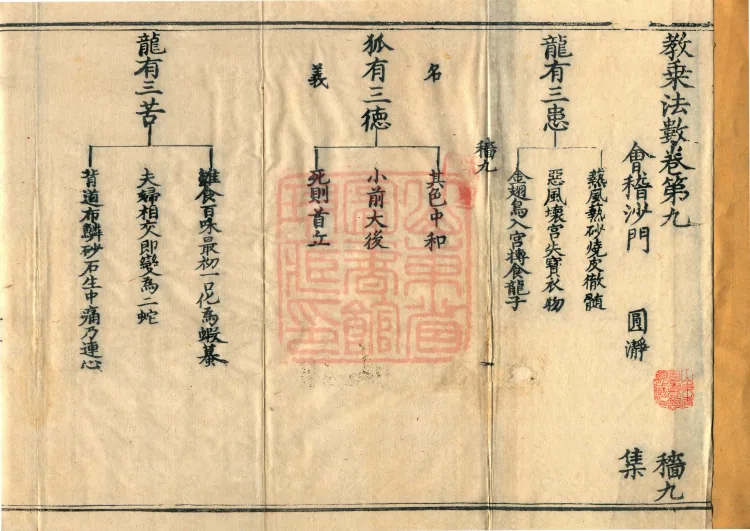 教乘法數卷第九
牆九
會稽沙門 圓瀞 集
龍有三患
熱風熱砂燒皮徹髓
惡風壞宮失寶衣物
金翅鳥入宮搏食龍子
牆九
名義
狐有三德
其色中和
小前大後
死則首丘
龍有三苦
雖食百味最初一口化為蝦蟇
夫婦相交即變為二蛇
背道布鱗砂石生中痛乃連心
山東省
圖書館
珍藏印